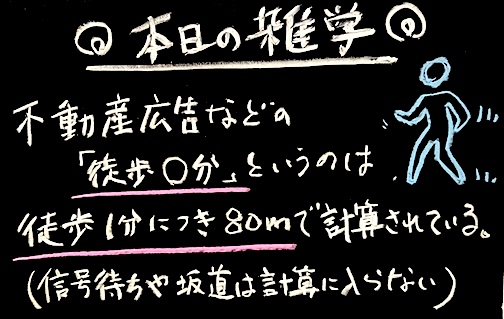 本日の雑学
不動産広告などの
「徒歩〇分」というのは
徒歩1分につき80mで計算されている。
(信号待ちや坂道は計算に入らない)